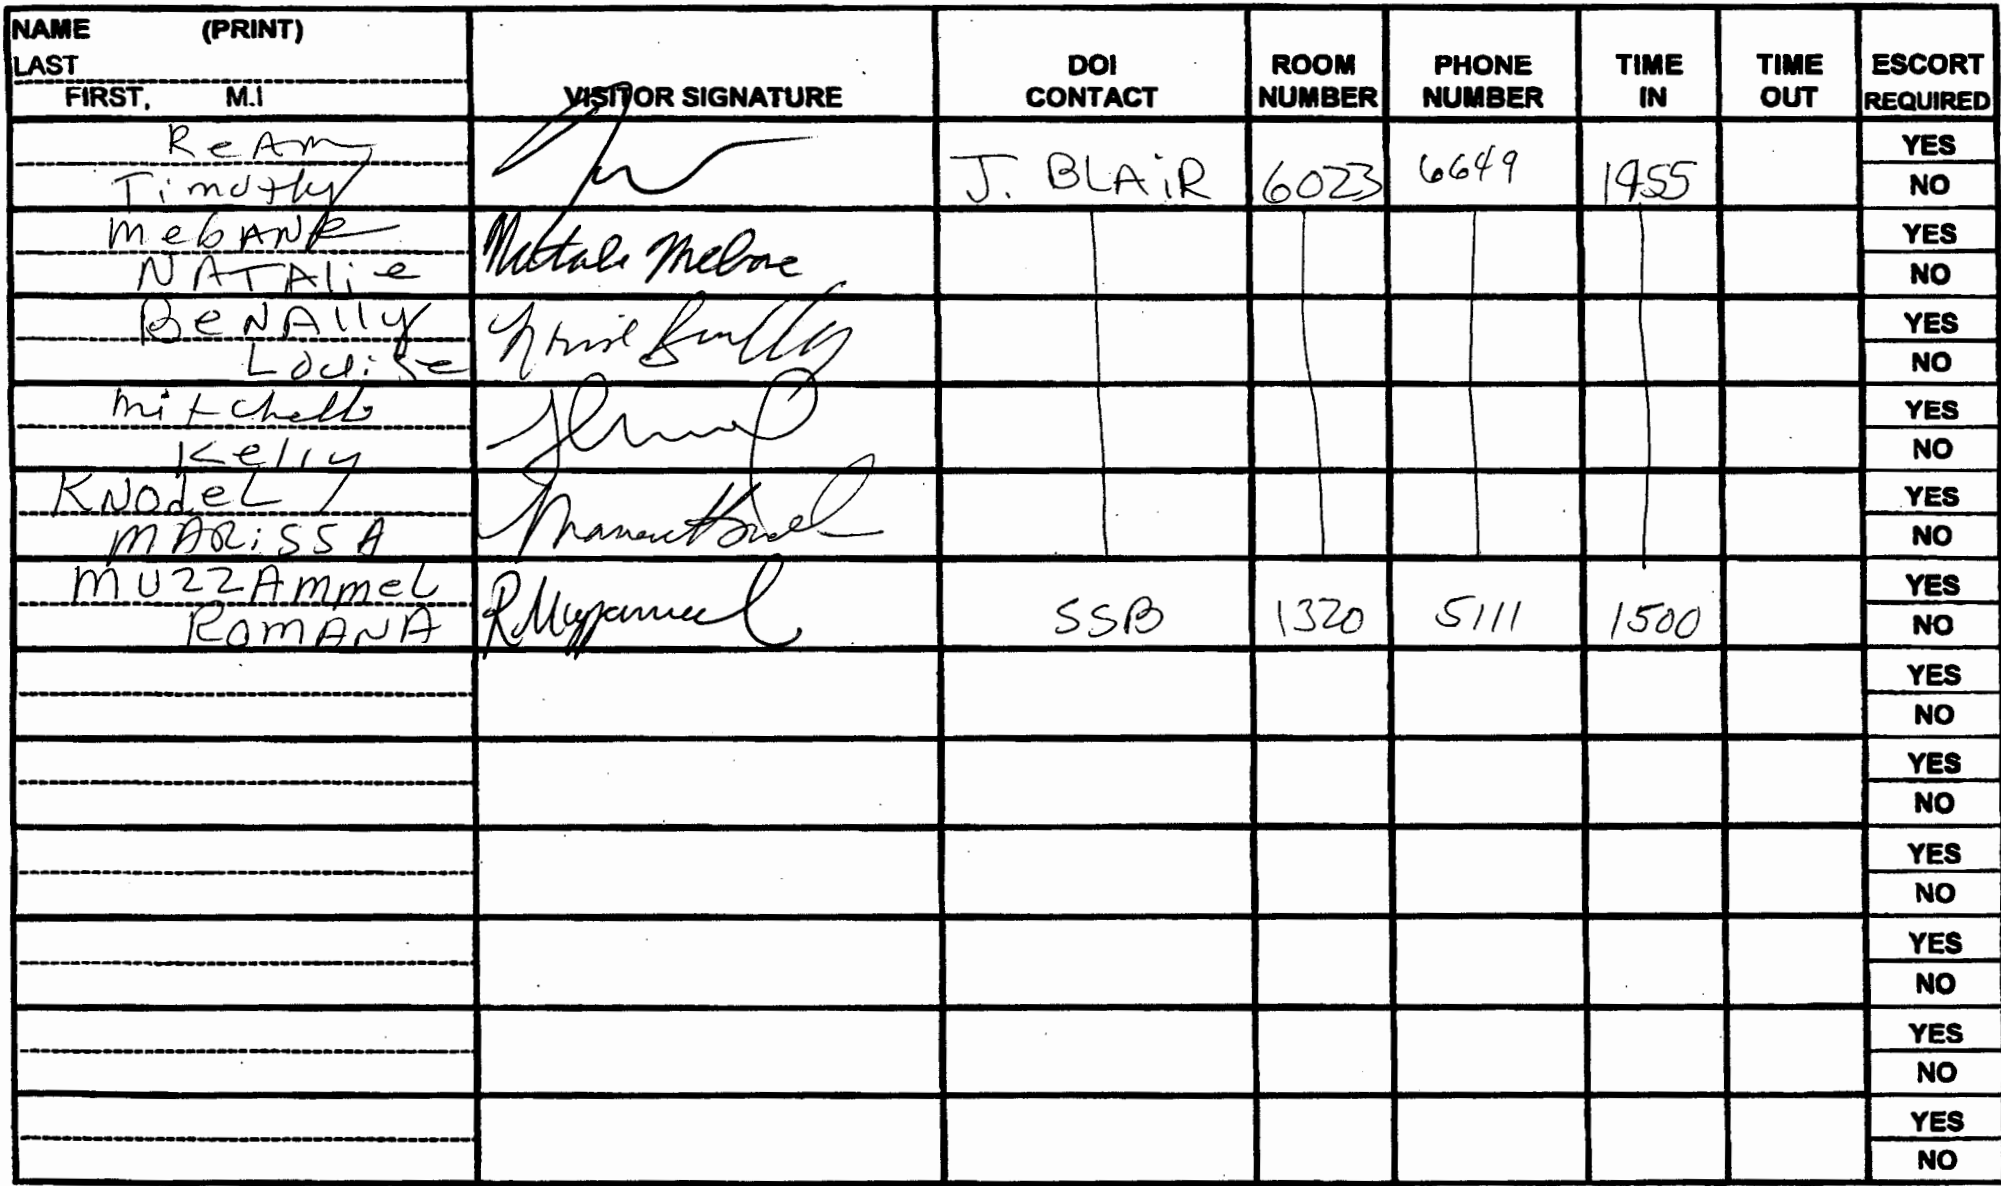 NAME (PRINT)
LAST
FIRST, M.I
VISITOR SIGNATURE
DOI CONTACT
ROOM NUMBER
PHONE NUMBER
TIME IN
TIME OUT
ESCORT REQUIRED
ReAm
Timothy
J. BLAiR 6023 6649 1455
YES
NO
mebANe
NATALie
YES
NO
BeNAlly
Louise
YES
NO
mitchell
Kelly
YES
NO
KNodeL
MARiSSA
YES
NO
MUZZAmmeL
ROMANA
R Muzzammel
SSB 1320 5111 1500
YES
NO
YES
NO
YES
NO
YES
NO
YES
NO
YES
NO
YES
NO